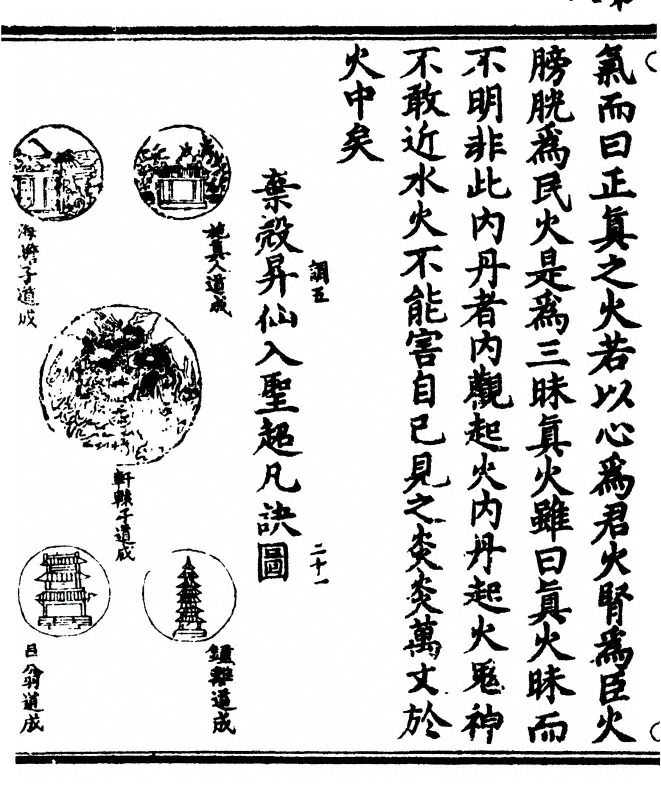 氣而曰正眞之火若以心爲君火腎爲臣火
膀胱爲民火是爲三昧眞火雖曰眞火昧而
不明非此內丹者內觀起火內丹起火鬼神
不敢近水火不能害自已見之炎炎萬丈於
火中矣
調五
棄殼昇仙入聖超凡訣圖
二十一
施真人道成
海蟾子道成
軒轅子道成
鍾離道成
呂翁道成